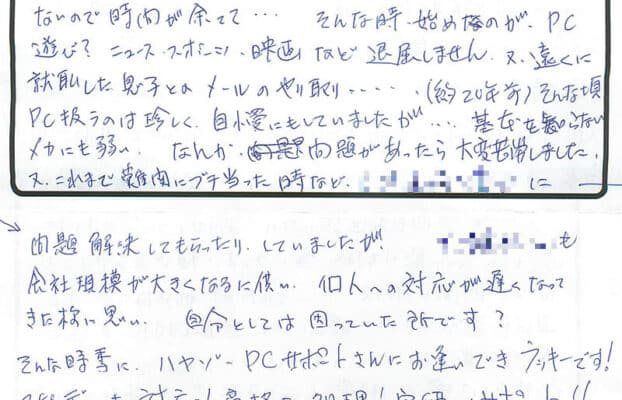 ないので時間が余って… そんな時、始めたのが、PC
遊び? ニュース、スポーツ、映画など退屈しません。又、遠くに
就職した息子とのメールのやり取り・・・・・(約20年前)そんな頃
PC扱うのは珍しく、自慢にもしていましたが… 基本を知らない
メカにも弱い、なんか 問題があったら大変苦労しました。
又、これまで難関にブチ当った時など、 に
問題解決してもらったり、していましたが! も
会社規模が大きくなるに供い、個人への対応が遅くなって
きた様に思い、自分としては困っていた所です?
そんな時季に、ハヤゾーPCサポートさんにお逢いできラッキーです!